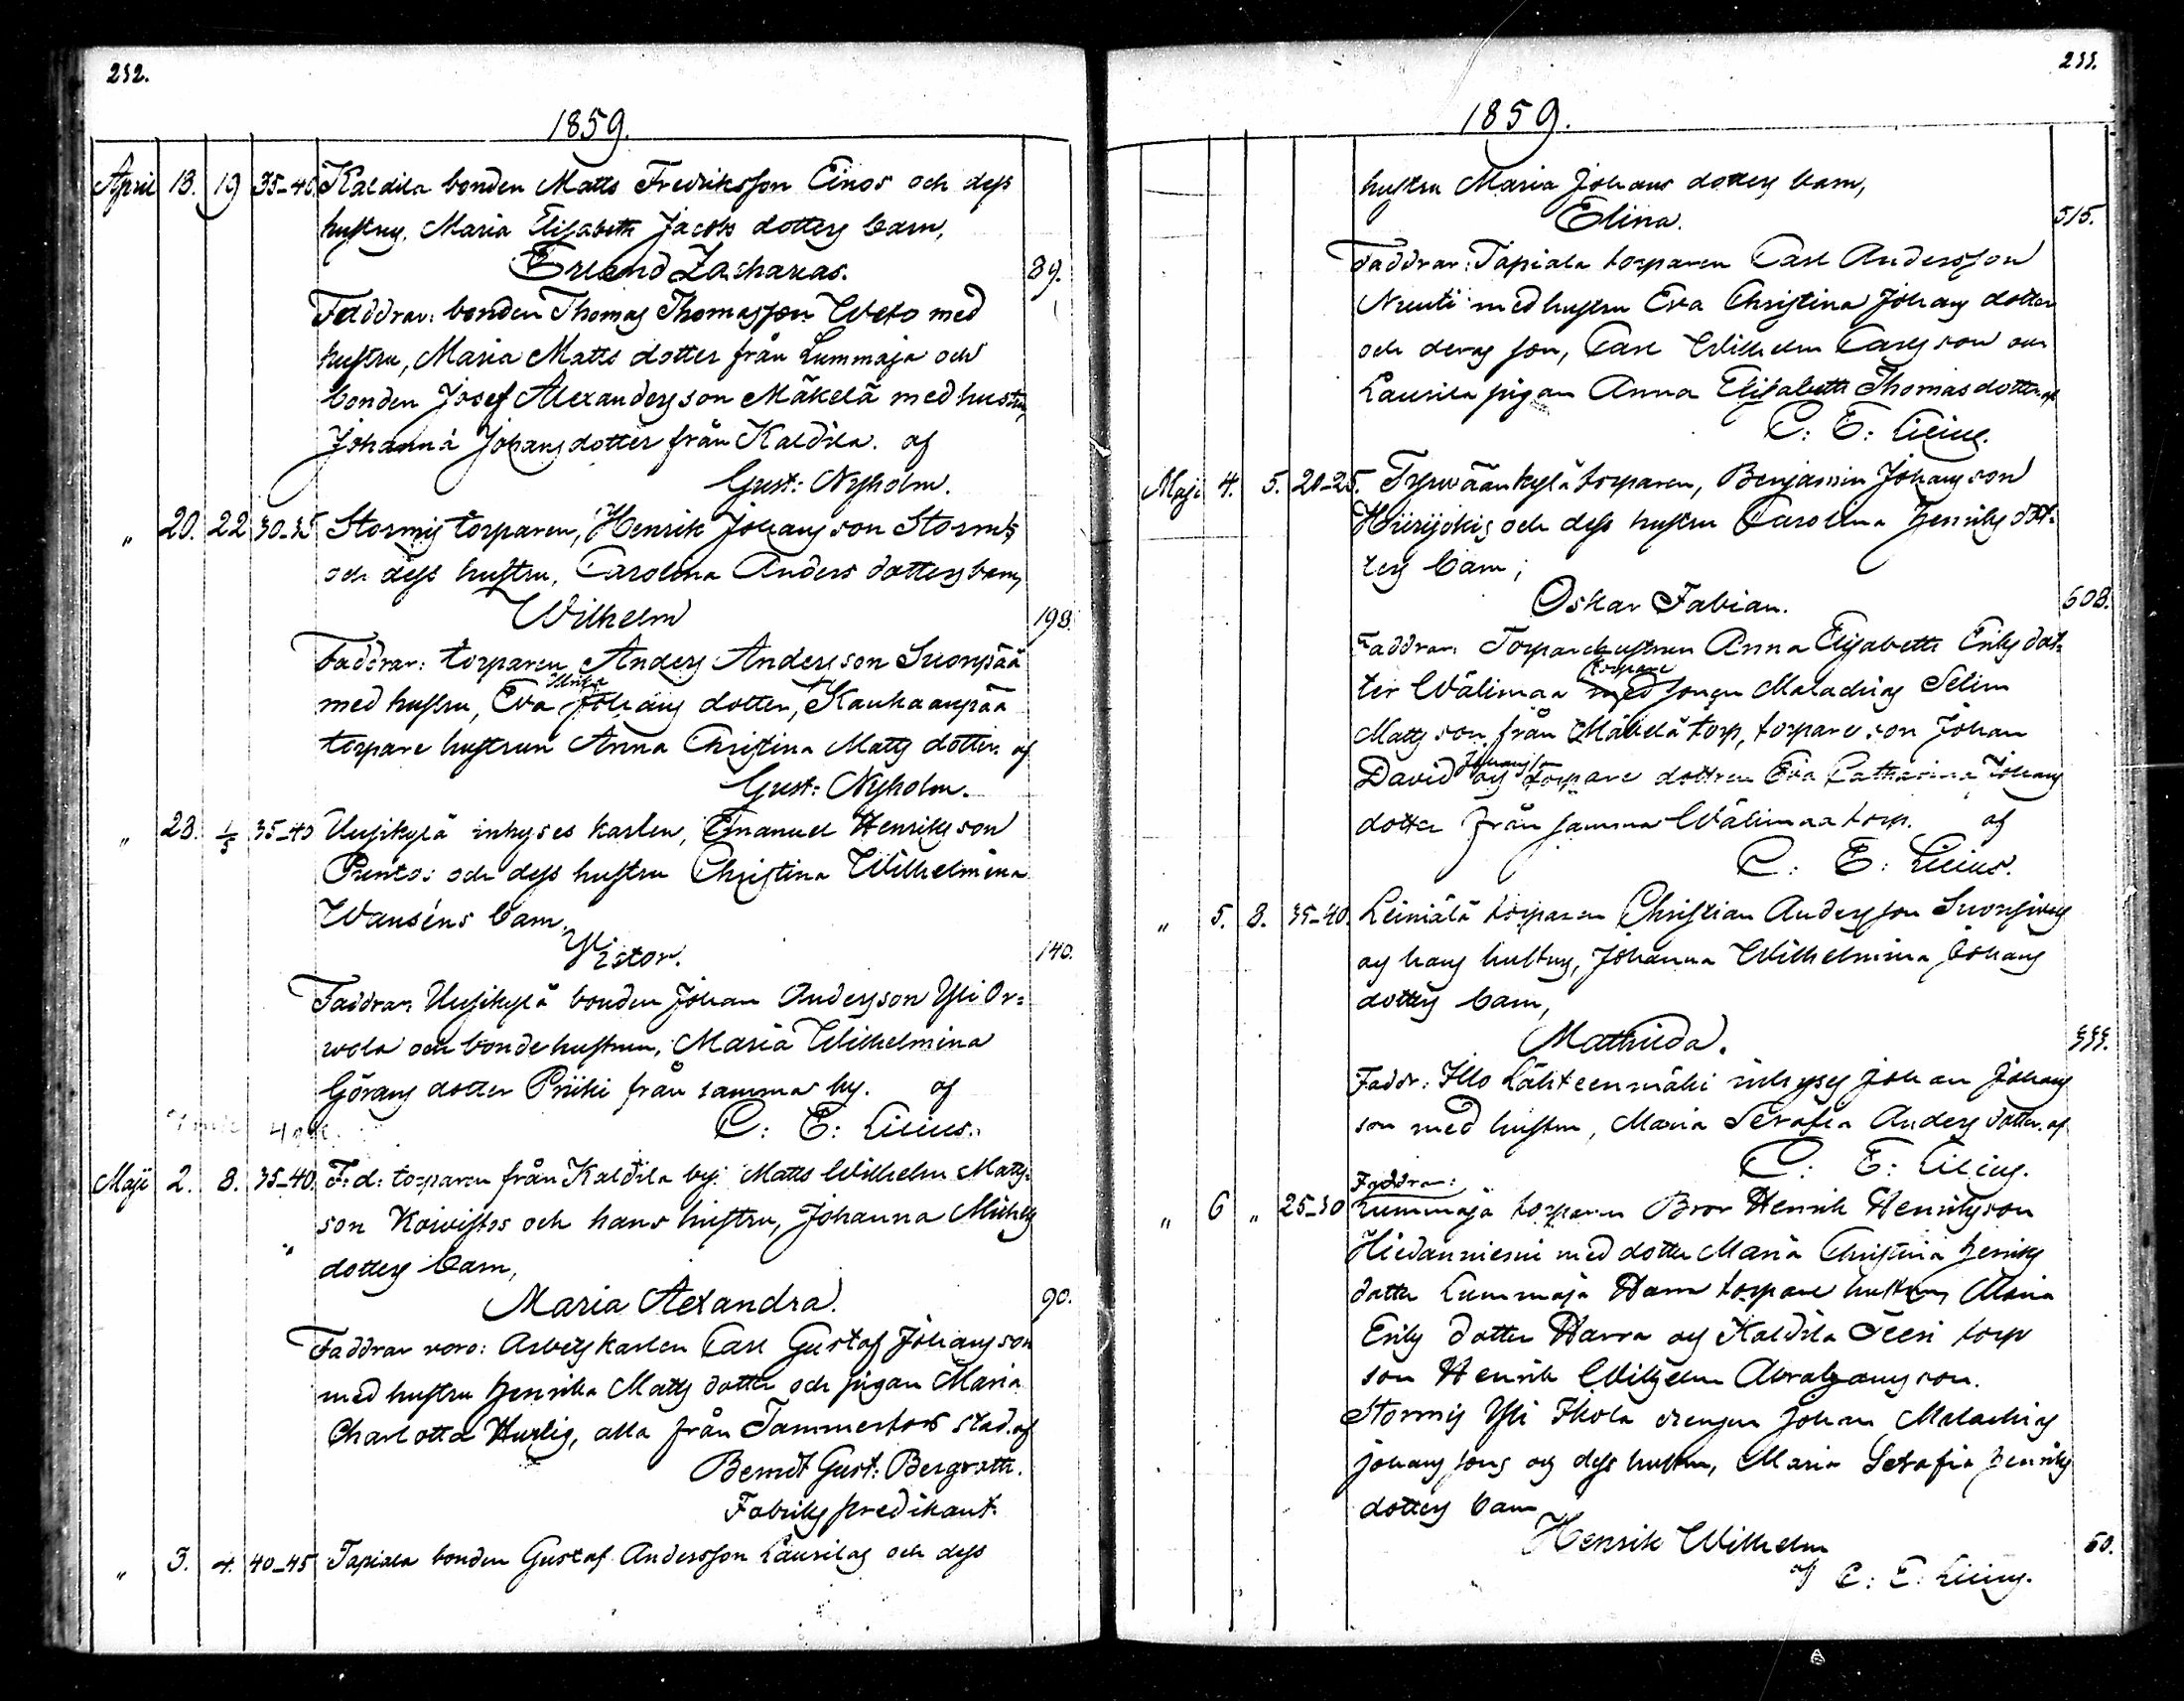 232.
1859.
April 18. 19 35-40. Kaldila bonden Matts Fredriksson Einos och dess
hustrus, Maria Elisabeth Jacobs dotters barn,
Erland Zacharias. 89.
Faddrar: bonden Thomas Thomasson Weto med
hustru, Maria Matts dotter från Lummaja och
bonden Josef Alexandersson Mäkelä med hustru,
Johanna Johans dotter från Kaldila. af
Gust: Nyholm.
" 20. 22 30-35 Stormis torparen, Henrik Johansson Storms
och dess hustru, Carolina Anders dotters barn,
Wilhelm 198.
Faddrar: torparen Anders Andersson Suonpää
med hustru, Eva Ulrika Johans dotter, Kauhaanpää
torpare hustrun Anna Christina Matts dotter. af
Gust: Nyholm.
" 28. 1/5 35-40 Uusikylä inhyses karlen, Emanuel Henriksson
Puntos och dess hustru Christina Wilhelmina
Wauséns barn,
Wistor. 140.
Faddrar: Uusikylä bonden Johan Andersson Yli Or=
wola och bondehustrun, Maria Wilhelmina
Görans dotter Priiki från samma by. af
C: E: Lilius.
Maji 2. 8. 35-40. F:d: torparen från Kaldila by: Matts Wilhelm Matts=
son Koivistos och hans hustru, Johanna Michels
dotters barn,
Maria Alexandra. 90.
Faddrar voro: Arbetskarlen Carl Gustaf Johansson
med hustru Henrika Matts dotter och pigan Maria
Charlotta Hurlig, alla från Tammerfors stad. af
Berndt Gust: Bergroth.
Fabriks predikant.
" 3. 4. 40-45 Tapiala bonden Gustaf Andersson Laurilas och dess
233.
1859.
hustru Maria Johans dotters barn,
Elina. 515.
Faddrar: Tapiala torparen Carl Andersson
med hustru Eva Christina Johans dotter
och deras son, Carl Wilhelm Carlsson och
Laurila pigan Anna Elisabeth Thomas dotter. af
C: E: Lilius.
Maji 4. 5. 20-25. Tyrwäänkylä torparen, Benjamin Johansson
Hiirijokis och dess hustru Carolina Henriks dot=
ters barn;
Oskar Fabian. 608.
Faddrar: Torparehustrun Anna Elisabeth Eriks dot=
ter Wälimaa torpare sonen Malachias Selim
Mattsson från Mäkelä torp, torpare son Johan
David Johansson och torpare dottren Eva Catharina Johans
dotter från samma Wälimaa torp. af
C: E: Lilius.
" 5. 8. 35-40. Leiniälä torparen Christian Andersson Suonsivus
och hans hustrus, Johanna Wilhelmina Johans
dotters barn,
Mathilda. 555.
Faddr: Illo Lähteenmäki inhyses Johan Johans
son med hustru, Maria Serafia Anders dotter. af
C: E: Lilius.
Faddrar:
" 6 " 25-30 Lummaja torparen Bror Henrik Henriksson
Hiedanniemi med dotter Maria Christina Henriks
dotter Lummaja Harra torpare hustrun, Maria
Eriks dotter Harra och Kaldila Teeri torp
son Henrik Wilhelm Abrahamsson.
Stormis Yli Ikola drengen Johan Malachias
Johanssons och dess hustru, Maria Serafia Henriks
dotters barn
Henrik Wilhelm 60.
af C: E: Lilius.